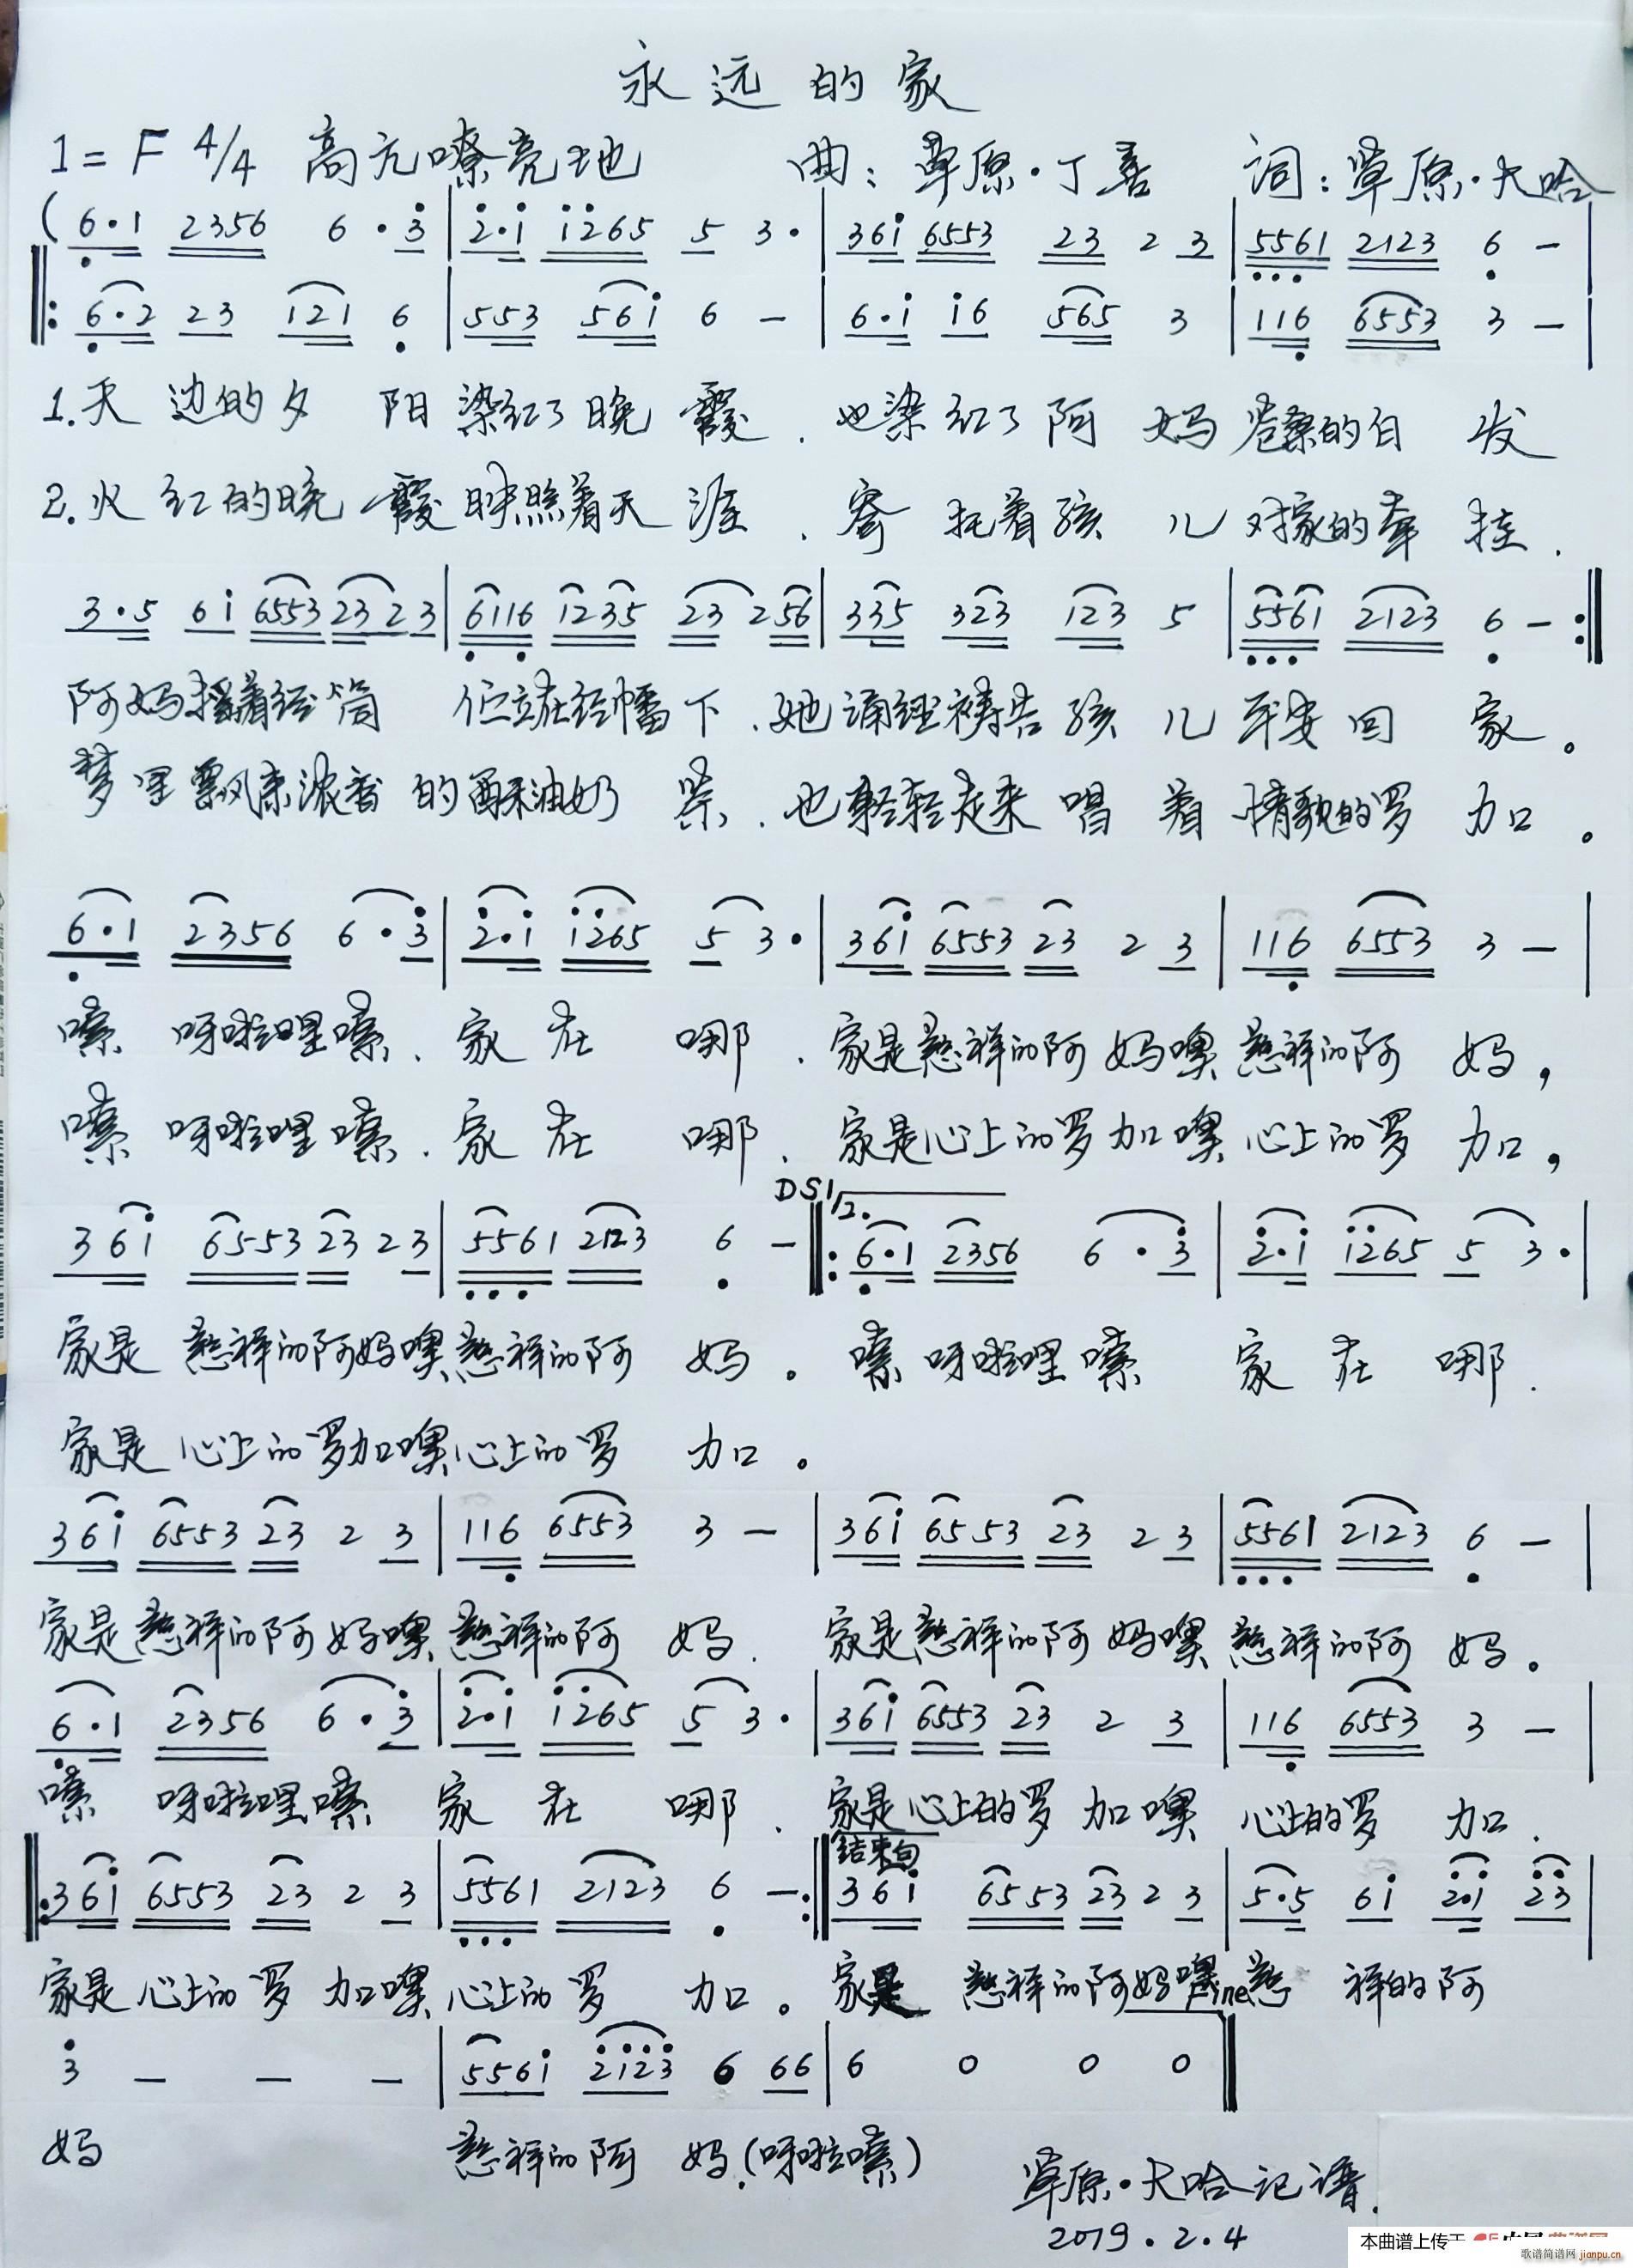 永远的家
1=F 4/4 高亢嘹亮地 曲：草原·丁喜 词：草原·大哈
(6·1 2356 6·3 | 2·i i265 5 3· | 36i 6553 23 2 3 | 5561 2123 6 - |
6·2 23 121 6 | 553 56i 6 - | 6·i i6 565 3 | 116 6553 3 - |
1.天边的夕阳染红了晚霞.也染红了阿妈苍桑的白发
2.火红的晚霞映照着天涯.寄托着孩儿对家的牵挂.
3·5 6i 6553 23 2 3 | 6116 1235 23 2 56 | 335 323 123 5 | 5561 2123 6 - :|
阿妈摇着经筒 伫立在经幡下.她诵经祷告孩儿平安回家。
梦里飘来浓香的酥油奶茶.也轻轻走来唱着情歌的罗加。
6·1 2356 6·3 | 2·i i265 5 3· | 36i 6553 23 2 3 | 116 6553 3 - |
嗦 呀啦哩嗦.家在哪.家是慈祥的阿妈噢慈祥的阿妈，
嗦 呀啦哩嗦.家在哪.家是心上的罗加噢心上的罗加，
DS1 2.
36i 6553 23 2 3 | 5561 2123 6 - |: 6·1 2356 6·3 | 2·i i265 5 3· |
家是慈祥的阿妈噢慈祥的阿妈。嗦呀啦哩嗦 家在哪.
家是心上的罗加噢心上的罗加。
36i 6553 23 2 3 | 116 6553 3 - | 36i 6553 23 2 3 | 5561 2123 6 - |
家是慈祥的阿妈噢慈祥的阿妈.家是慈祥的阿妈噢慈祥的阿妈。
6·1 2356 6·3 | 2·i i265 5 3· | 36i 6553 23 2 3 | 116 6553 3 - |
嗦 呀啦哩嗦 家在哪.家是心上的罗加噢心上的罗加.
结束句
|: 36i 6553 23 2 3 | 5561 2123 6 - :| 36i 6553 23 2 3 | 5·5 6i 2·i 23 |
家是心上的罗加噢心上的罗加。家是慈祥的阿妈噢慈祥的阿
Fine
3 - - - | 556i 2123 6 66 | 6 0 0 0 |
妈 慈祥的阿妈.(呀啦嗦)
草原·大哈记谱.
2019.2.4
本曲谱上传于
歌谱简谱网 jianpu.cn